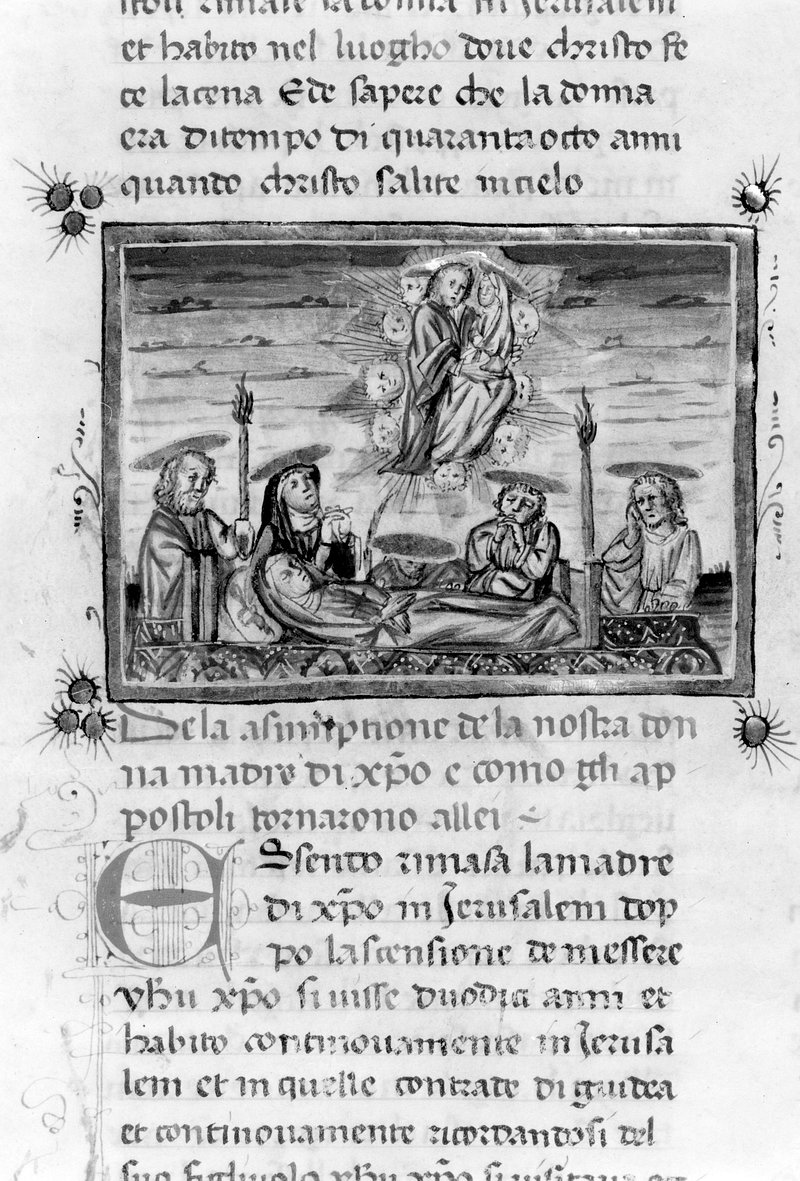 et habito nel luogho doue christo fe
ce lacena Ede sapere che la donna
era ditempo di quaranta octo anni
quando christo salite incielo
Dela asumptione de la nostra don
na madre di xp̄o e como gli ap
postoli tornarono allei
Essento rimasa lamadre
di xp̄o in Jerusalem dop
po lascensione de messere
yhu xp̄o si uisse duodici anni et
habito continouamente in Jerusa
lem et in quelle contrate di giudea
et continouamente ricordandosi del
suo figliuolo yhu xp̄o si uisitaua